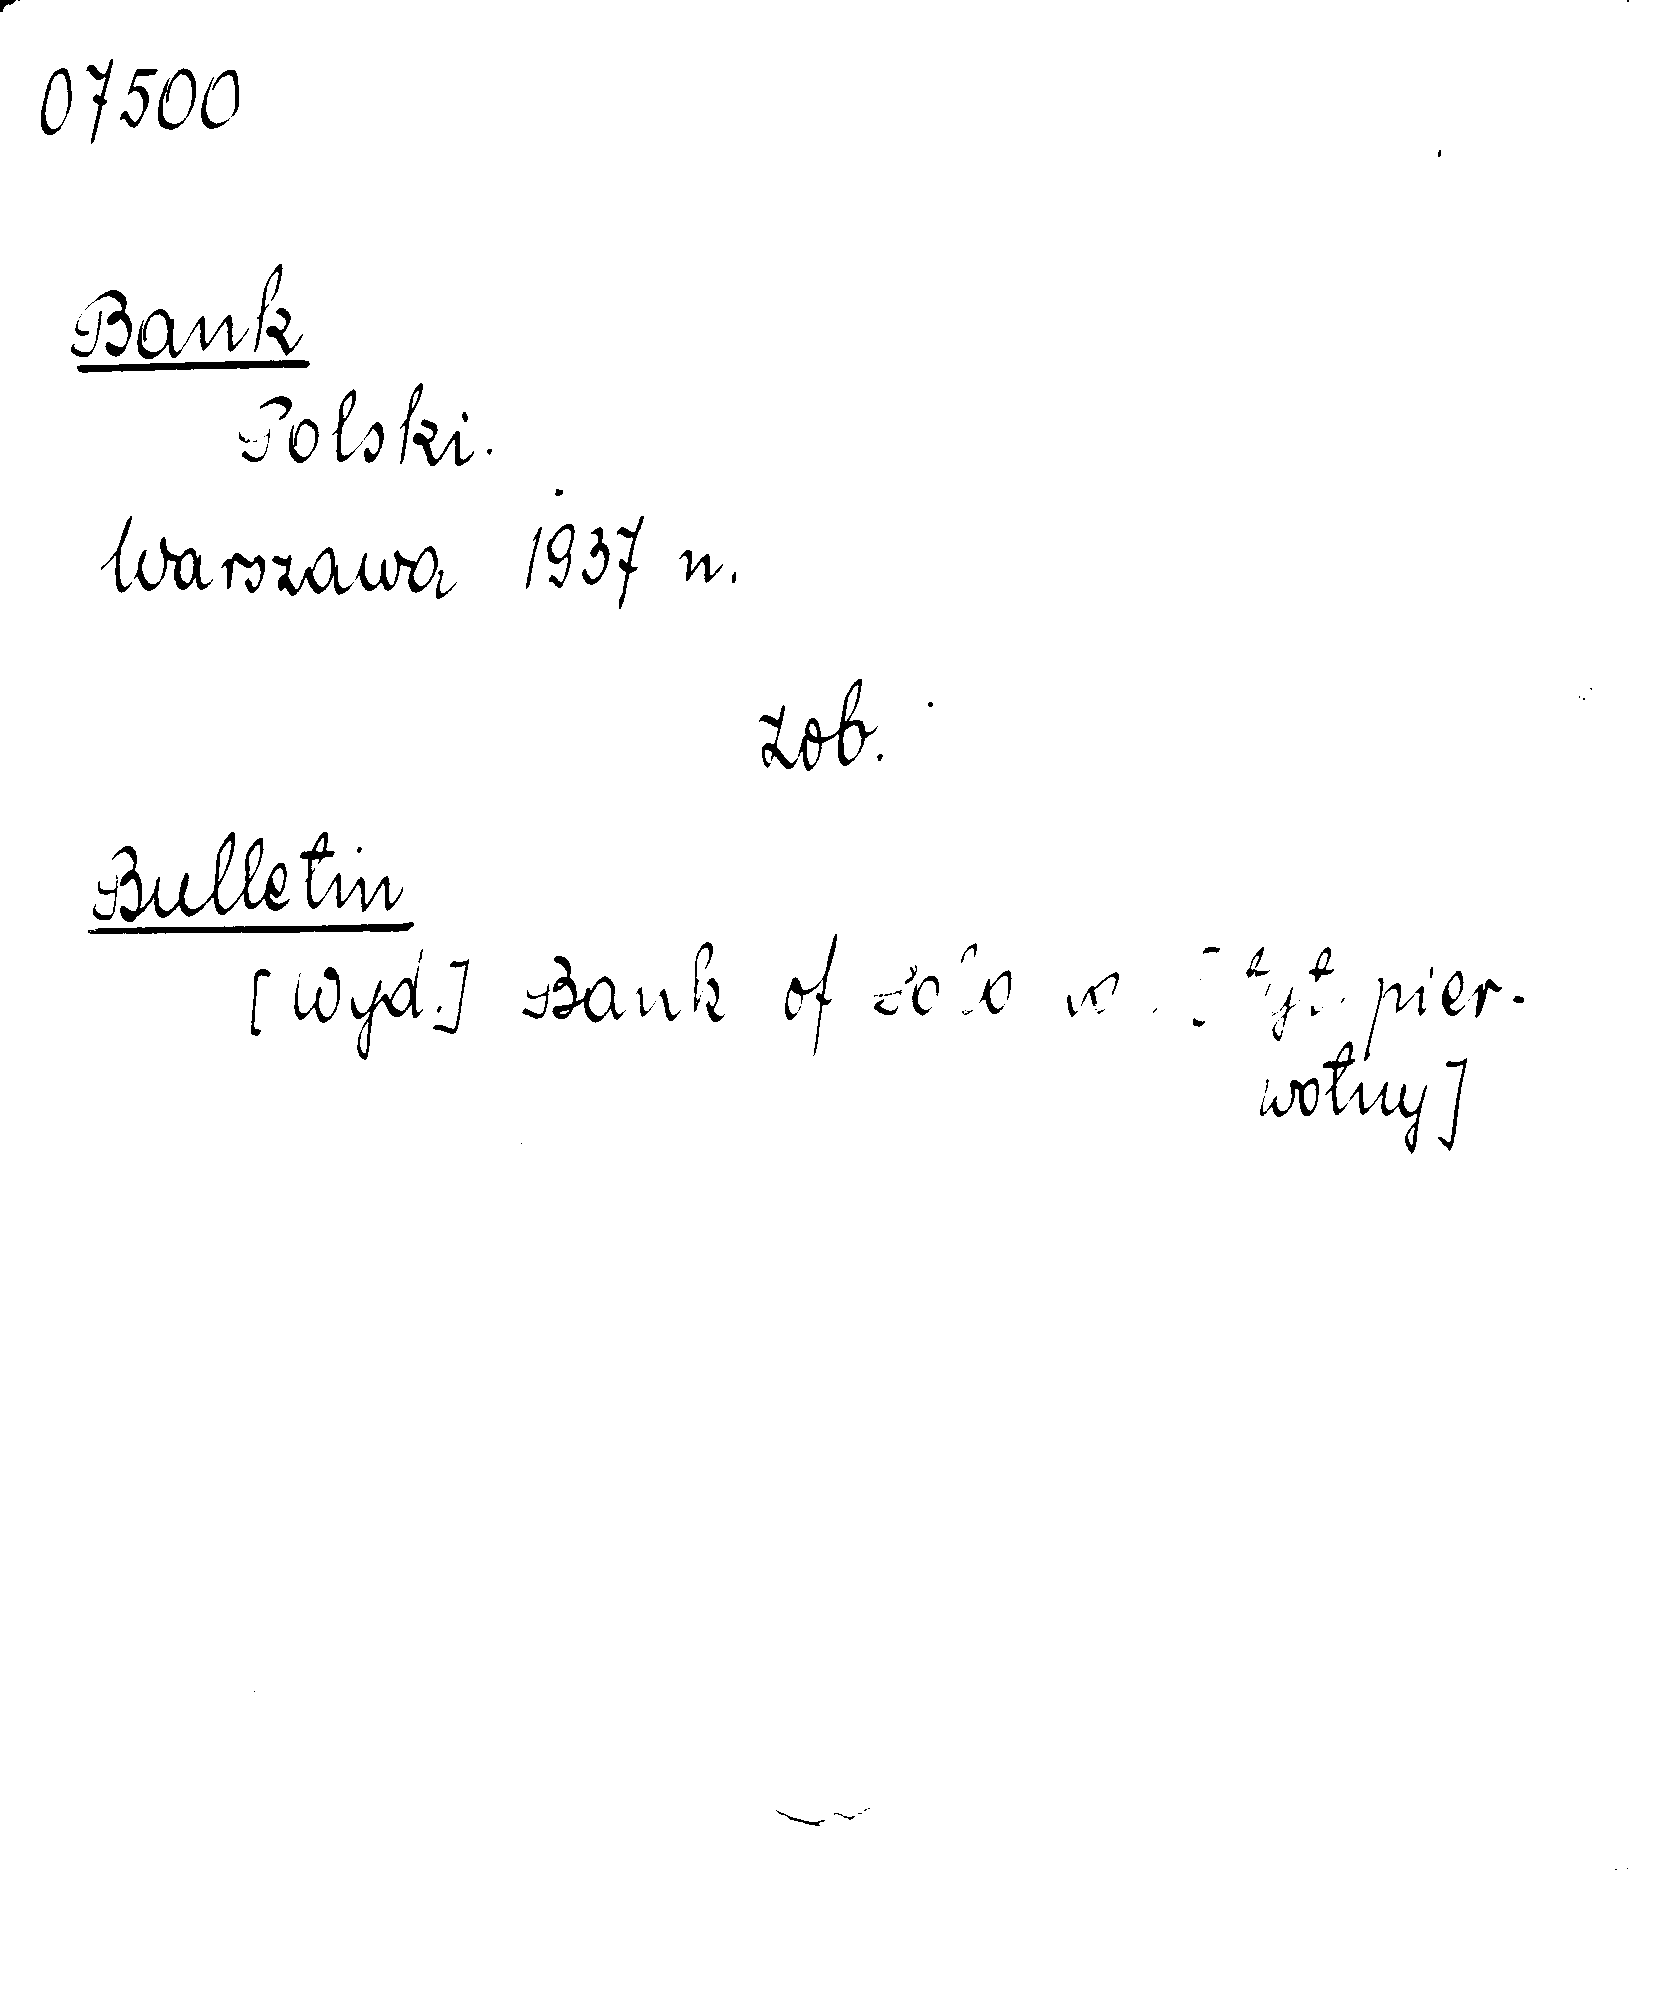 07500
Bank
Polski.
Warszawa 1937 n.
zob.
Bulletin
[Wyd.] Bank of [tyt. pier-
wotny]